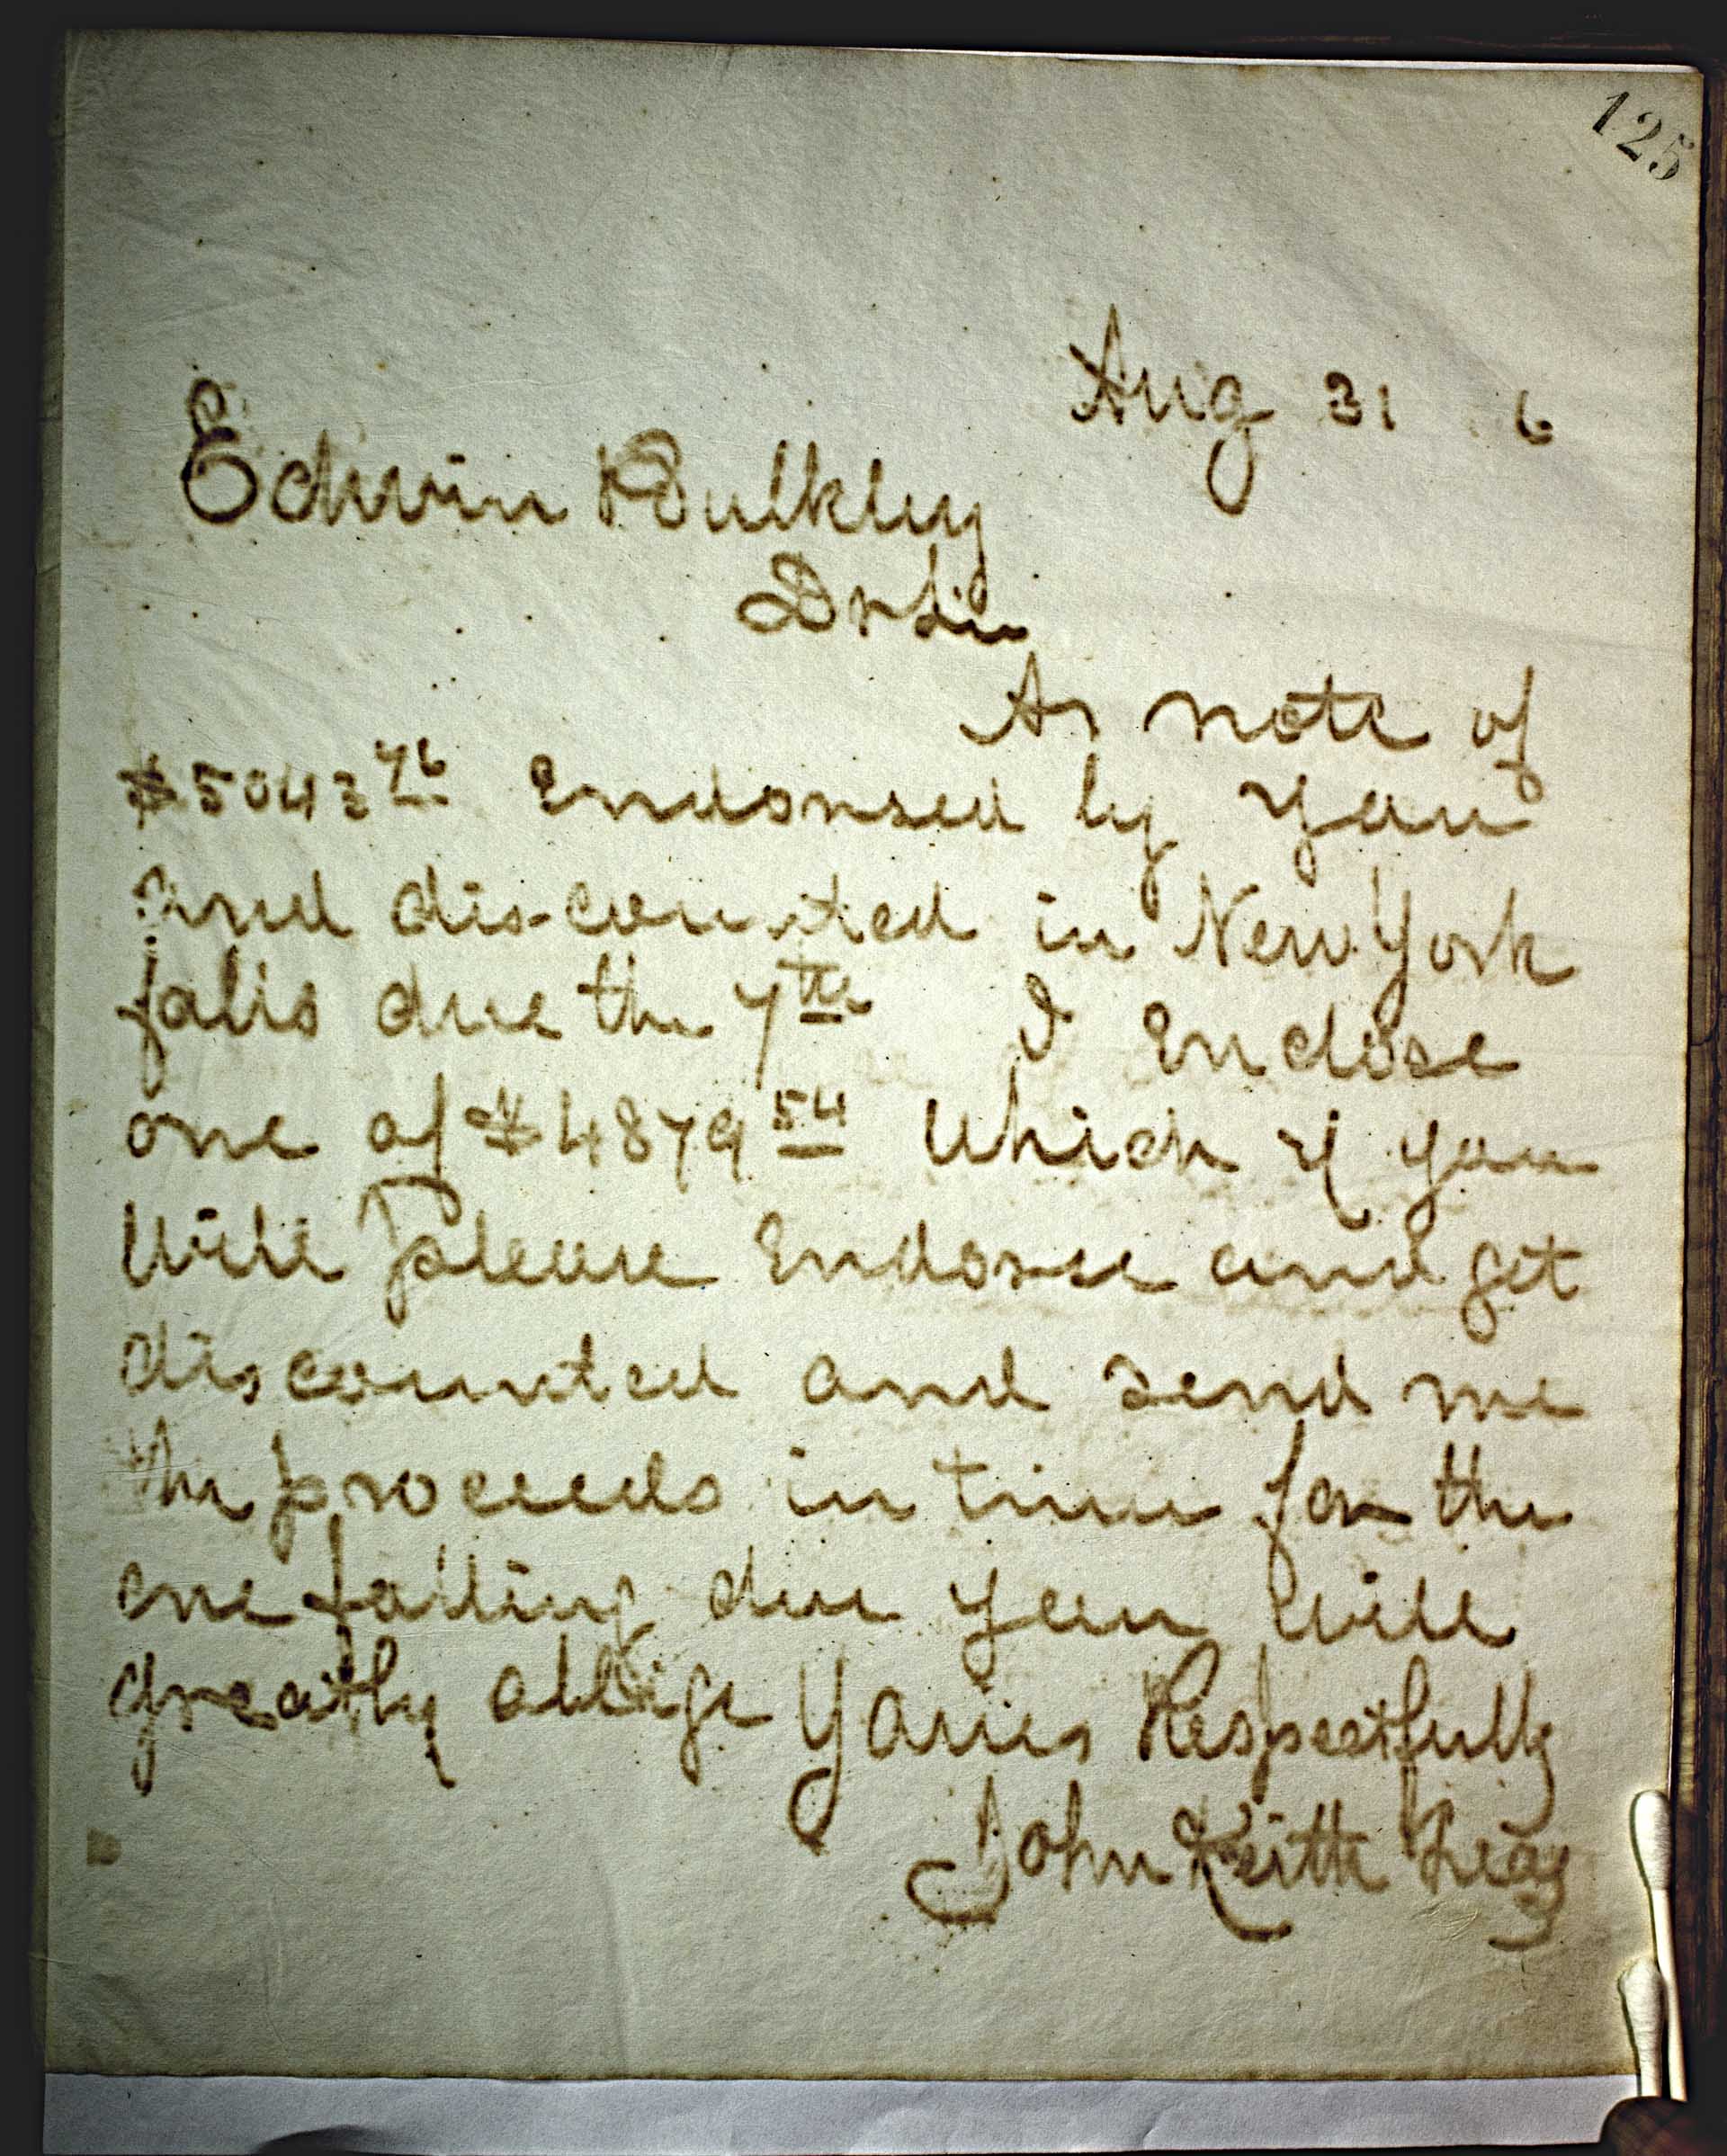 125
Aug 31 6
Edwin Bulkley
Dr Sir
As note of
$5043 76 Endorsed by you
and discounted in New York
falls due the 7th I Enclose
one of $4879 54 Which if you
Will Please Endorse and get
discounted and send me
the proceeds in time for the
one falling due you will
greatly oblige Yours Respectfully
John Keith